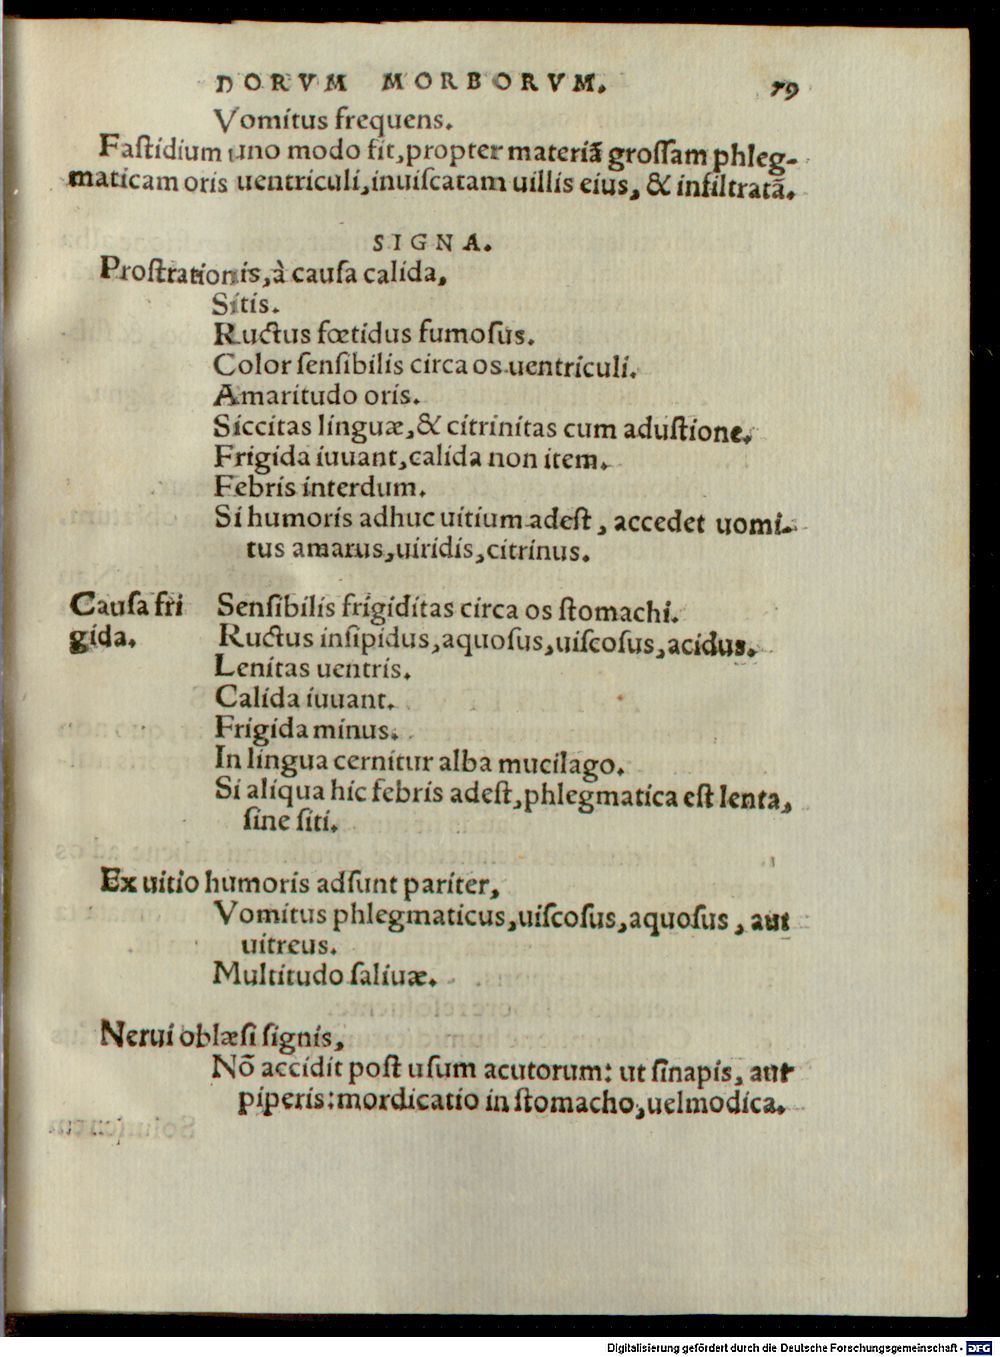 DORVM MORBORVM. 79
Vomitus frequens.
Faſtidium uno modo fit, propter materiã groſſam phleg-
maticam oris uentriculi, inuiſcatam uillis eius, & infiltratã.
SIGNA.
Proſtrationis, à cauſa calida,
Sitis.
Ructus fœtidus fumoſus.
Color ſenſibilis circa os uentriculi.
Amaritudo oris.
Siccitas linguæ, & citrinitas cum aduſtione.
Frigida iuuant, calida non item.
Febris interdum.
Si humoris adhuc uitium adeſt, accedet uomi-
tus amarus, uiridis, citrinus.
Cauſa fri Senſibilis frigiditas circa os ſtomachi.
gida. Ructus inſipidus, aquoſus, uiſcoſus, acidus.
Lenitas uentris.
Calida iuuant.
Frigida minus.
In lingua cernitur alba mucilago.
Si aliqua hic febris adeſt, phlegmatica eſt lenta,
ſine ſiti.
Ex uitio humoris adſunt pariter,
Vomitus phlegmaticus, uiſcoſus, aquoſus, aut
uitreus.
Multitudo ſaliuæ.
Nerui oblæſi ſignis,
Nõ accidit poſt uſum acutorum: ut ſinapis, aut
piperis: mordicatio in ſtomacho, uel modica.
Digitalisierung gefördert durch die Deutsche Forschungsgemeinschaft - DFG